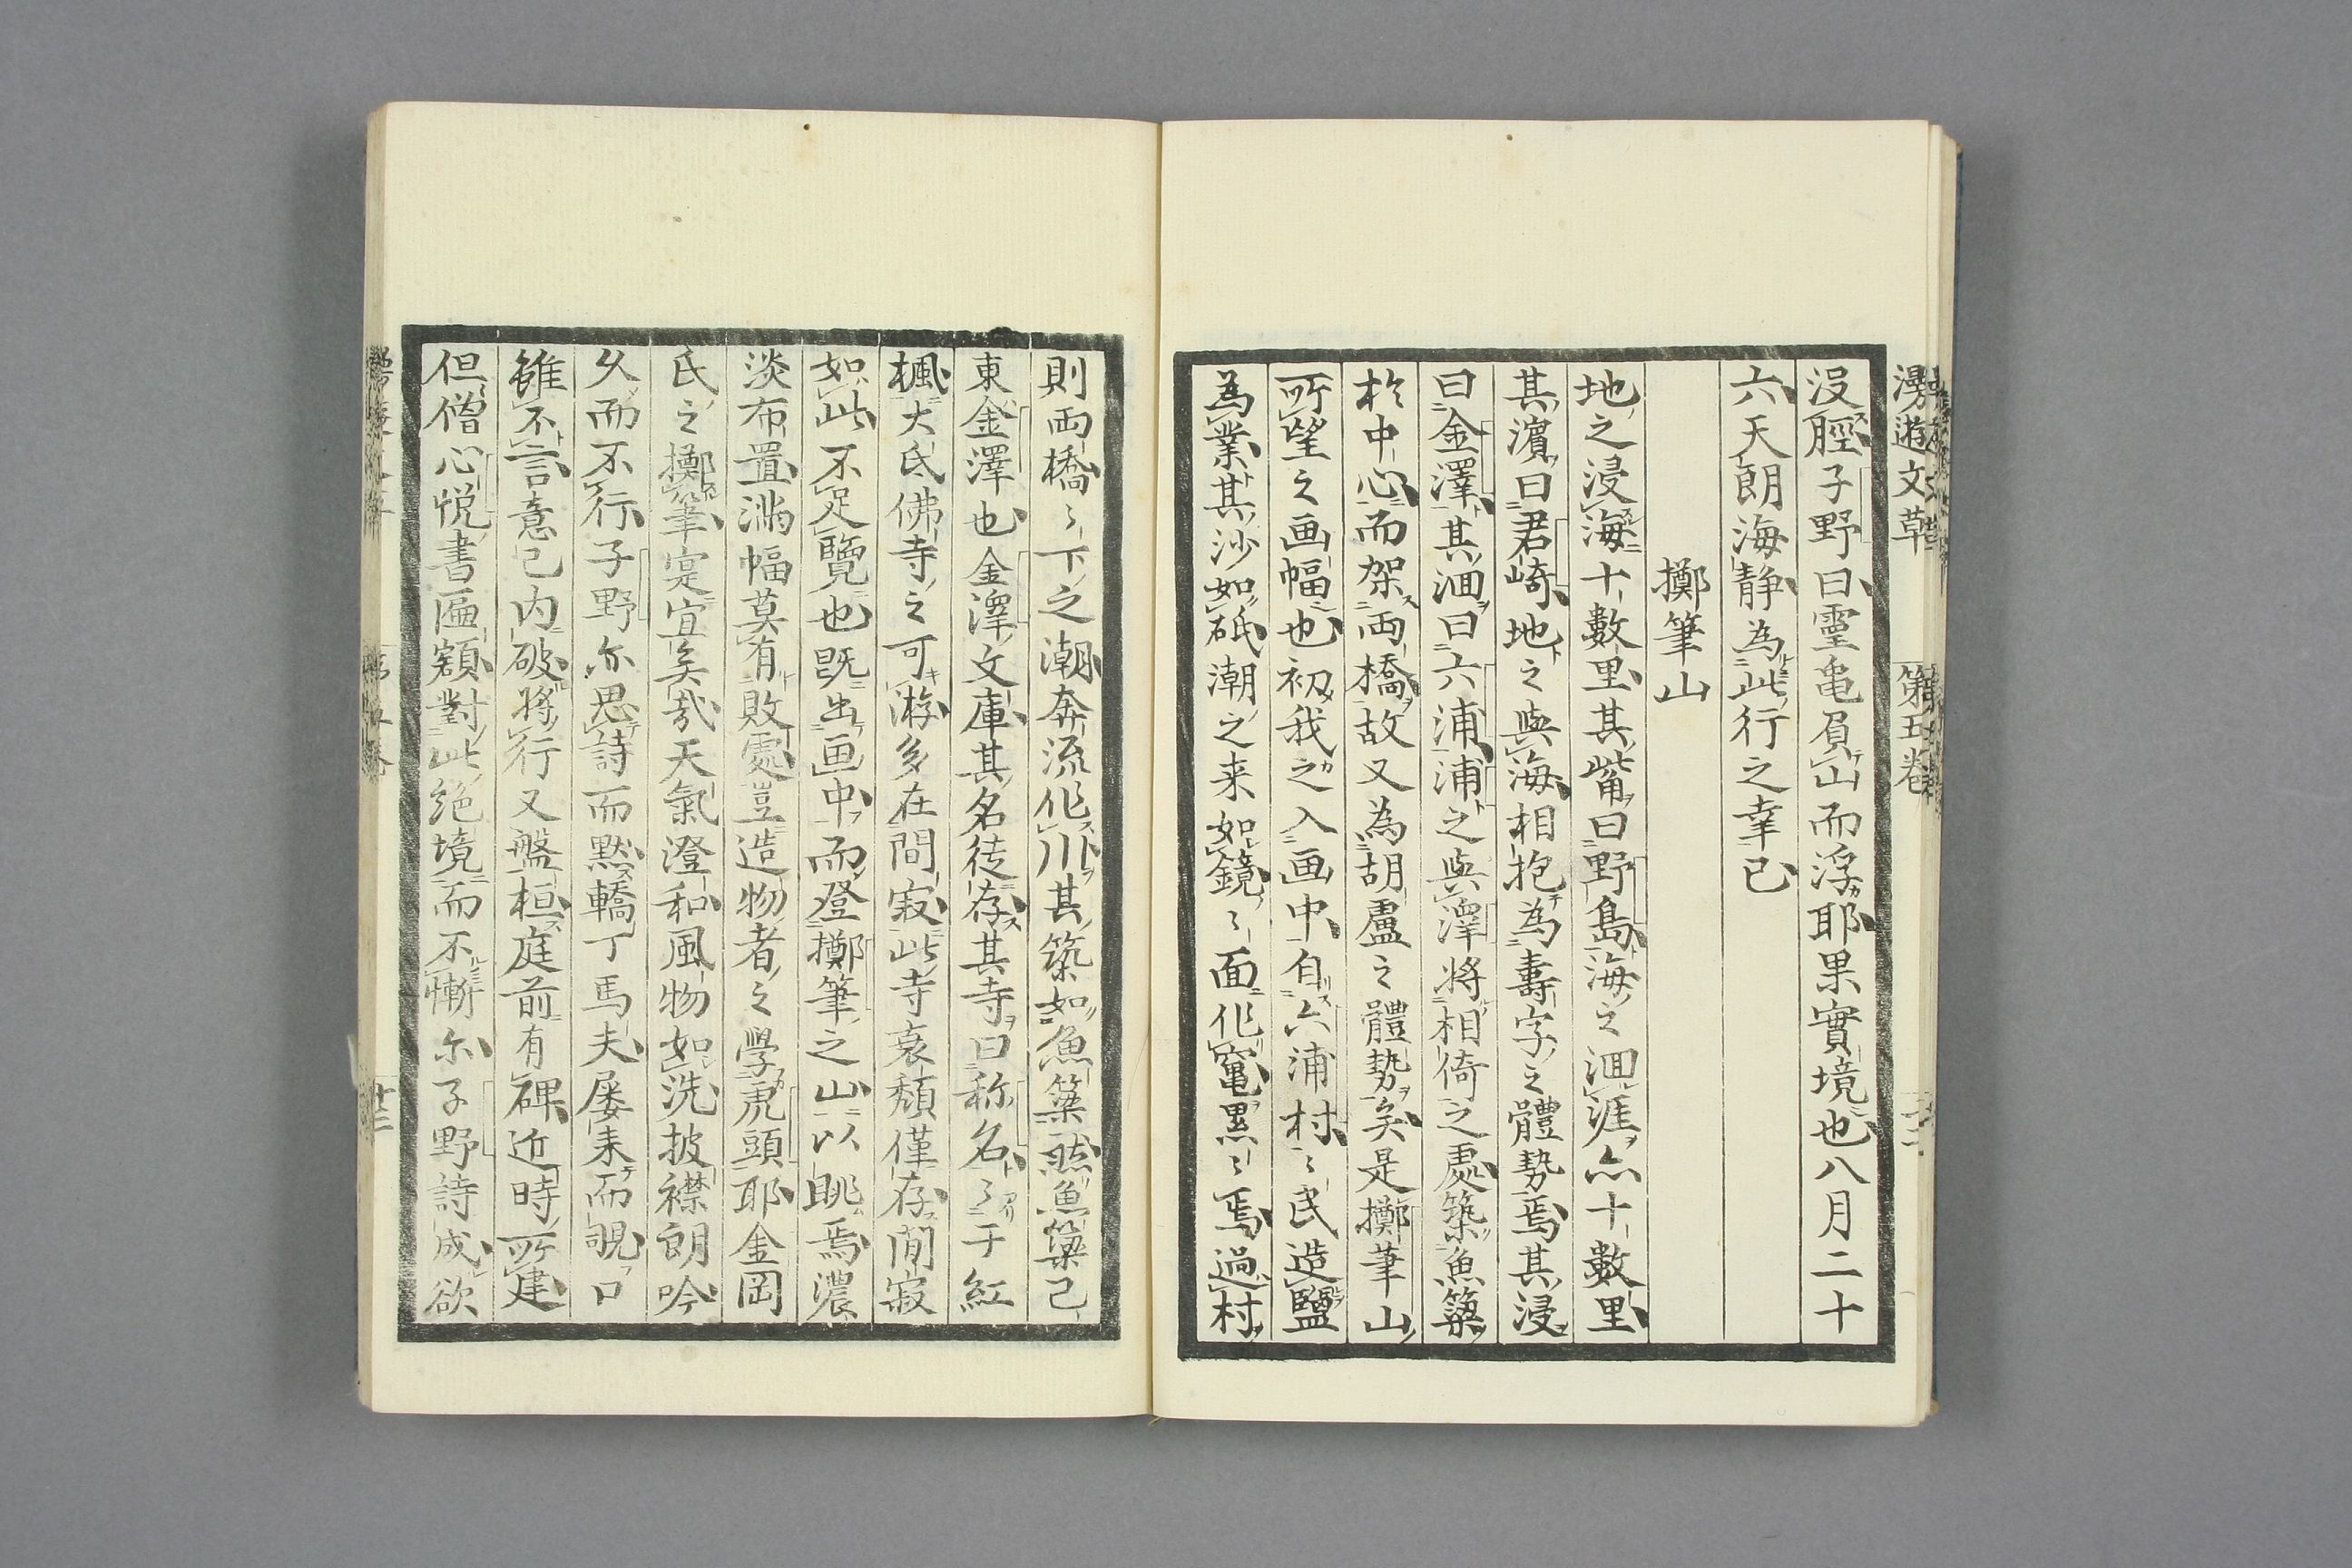 漫遊文草 第五卷
沒脛子野曰靈亀負山而浮耶果實境也八月二十
六天朗海静為此行之幸已
擲筆山
地之浸海十數里其觜曰野島海之洄涯亦十數里
其濵曰君崎地之與海相抱為壽字之體勢焉其浸
曰金澤其洄曰六浦浦之與澤將相倚之處築魚簗
於中心而架両橋故又為胡盧之體勢矣是擲筆山
所望之画幅也初我之入画中自六浦村々民造鹽
為業其沙如砥潮之来如鏡々面化竃黒々焉過村
則両橋々下之潮奔流作川其築如魚簗然魚簗已
東金澤也金澤文庫其名徒存其寺曰称名々于紅
楓大氐佛寺之可游多在間寂此寺衰頽僅存間寂
如此不足覽也既出画中而登擲筆之山以眺焉濃
淡布置満幅莫有敗處豈造物者之學虎頭耶金岡
氏之擲筆寔宜矣哉天氣澄和風物如洗披襟朗吟
久而不行子野亦思詩而黙轎丁馬夫屡来而覗口
雖不言意已内破將行又盤桓庭前有碑近時所建
但僧心悦書匾額對此絶境而不慚尔子野詩成欲